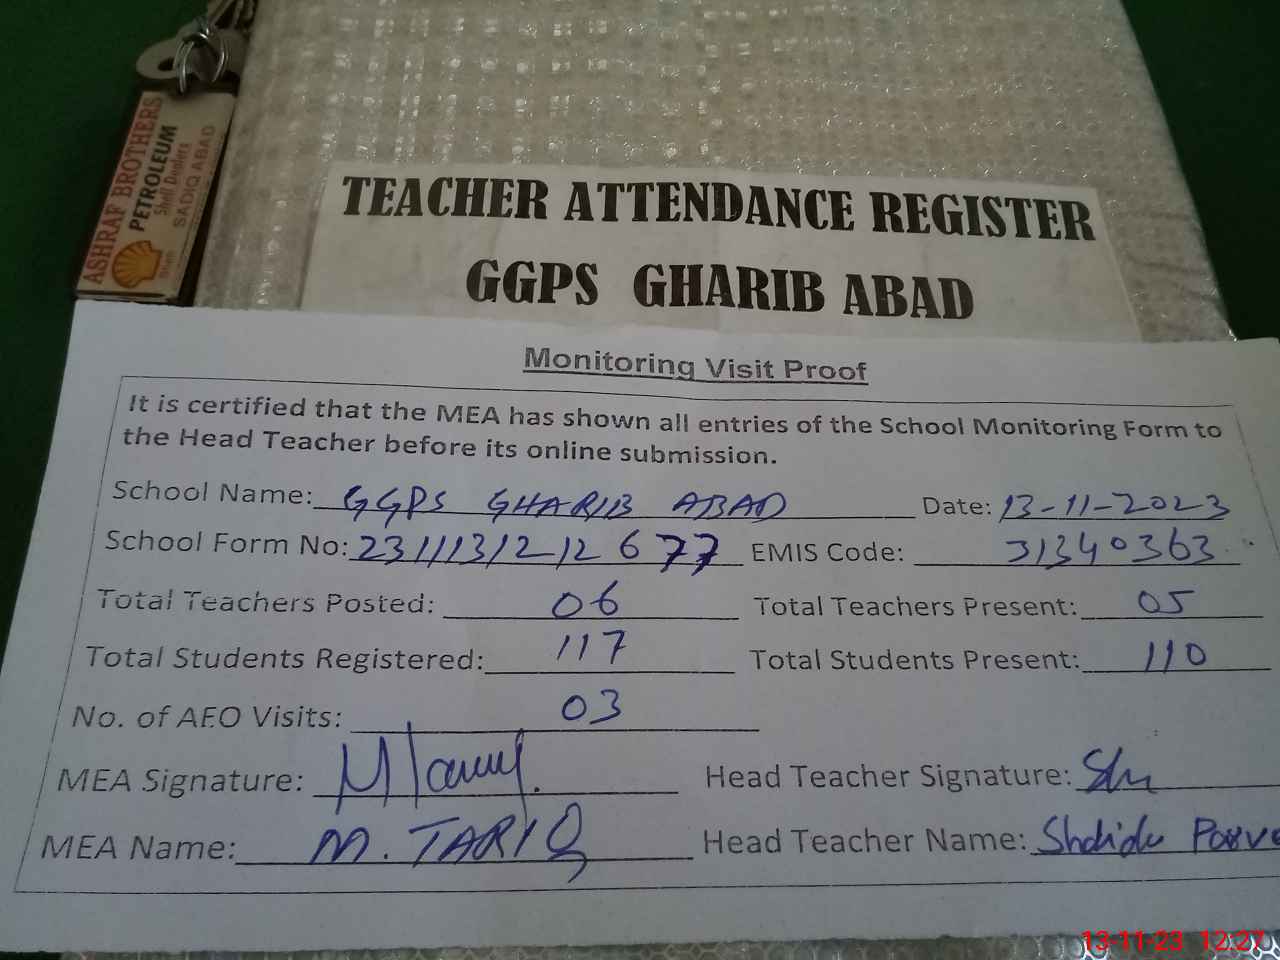 ASHRAF BROTHERS
PETROLEUM
Shell Dealers
SADIQ ABAD
TEACHER ATTENDANCE REGISTER
GGPS GHARIB ABAD
Monitoring Visit Proof
It is certified that the MEA has shown all entries of the School Monitoring Form to
the Head Teacher before its online submission.
School Name: GGPS GHARIB ABAD Date: 13-11-2023
School Form No: 2311131212677 EMIS Code: 31340363
Total Teachers Posted: 06 Total Teachers Present: 05
Total Students Registered: 117 Total Students Present: 110
No. of AEO Visits: 03
MEA Signature: Head Teacher Signature:
MEA Name: M. TARIQ Head Teacher Name:
13-11-23 12:27